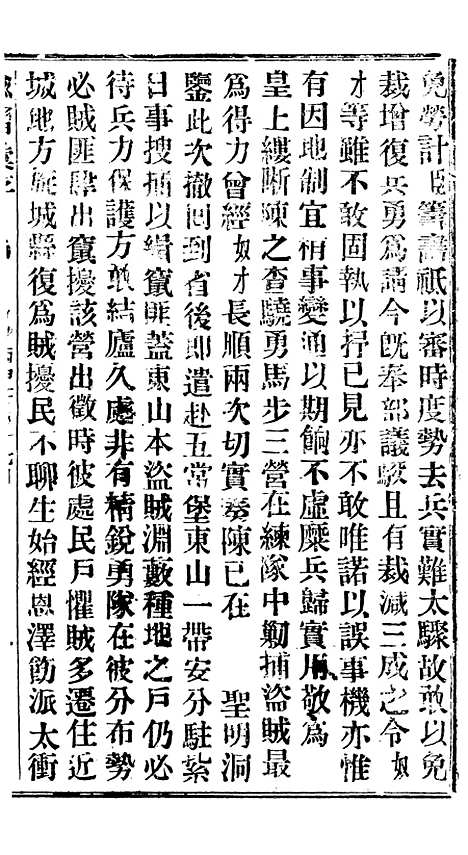 免勞計臣籌畫祇以審時度勢去兵實難太驟故敢以免
裁增復兵勇爲請今旣奉部議駁且有裁減三成之令奴
才等雖不敢固執以抒己見亦不敢唯諾以誤事機亦惟
有因地制宜稍事變通以期餉不虛糜兵歸實用敬爲
皇上縷晰陳之查驍勇馬步三營在練隊中剿捕盜賊最
爲得力曾經奴才長順兩次切實奏陳已在　聖明洞
鑒此次撤回到省後即遣赴五常堡東山一帶安分駐紮
日事搜捕以緝竄匪蓋東山本盜賊淵藪種地之戶仍必
待兵力保護方敢結廬久處非有精銳勇隊在彼分布勢
必賊匪肆出竄擾該營出徵時彼處民戶懼賊多遷住近
城地方嗣城縣復爲賊擾民不聊生始經恩澤飭派太衝